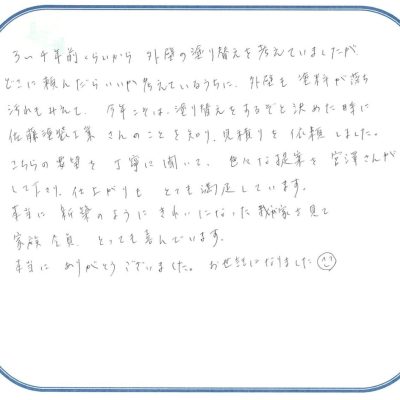 3〜4年前くらいから 外壁の塗り替えを考えていましたが、
どこに頼んだらいいか考えているうちに、外壁も 塗料が落ち
汚れもみえて、今年こそは、塗り替えをするぞと決めた時に
佐藤塗装工業 さんのことを知り、見積りを依頼しました。
こちらの要望を 丁寧に聞いて、色々な提案を 宮澤さんが
して下さり、仕上がりも とても満足しています。
本当に 新築のように きれいになった 我が家を見て
家族全員、とっても喜んでいます。
本当に ありがとうございました。お世話になりました